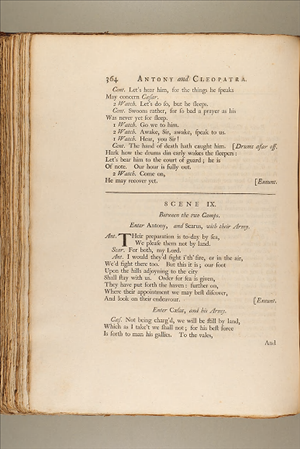 364 ANTONY and CLEOPATRA.
Cent. Let's hear him, for the things he speaks
May concern Cæsar.
2 Watch. Let's do so, but he sleeps.
Cent. Swoons rather, for so bad a prayer as his
Was never yet for sleep.
1 Watch. Go we to him.
2 Watch. Awake, Sir, awake, speak to us.
1 Watch. Hear, you Sir!
Cent. The hand of death hath caught him. [Drums afar off.
Hark how the drums din early wakes the sleepers:
Let's bear him to the court of guard; he is
Of note. Our hour is fully out.
2 Watch. Come on,
He may recover yet. [Exeunt.
SCENE IX.
Between the two Camps.
Enter Antony, and Scarus, with their Army.
Ant. THeir preparation is to-day by sea,
We please them not by land.
Scar. For both, my Lord.
Ant. I would they'd fight i'th' fire, or in the air,
We'd fight there too. But this it is; our foot
Upon the hills adjoyning to the city
Shall stay with us. Order for sea is given,
They have put forth the haven: further on,
Where their appointment we may best discover,
And look on their endeavour. [Exeunt.
Enter Cæsar, and his Army.
Cæs. Not being charg'd, we will be still by land,
Which as I take't we shall not; for his best force
Is forth to man his gallies. To the vales,
And